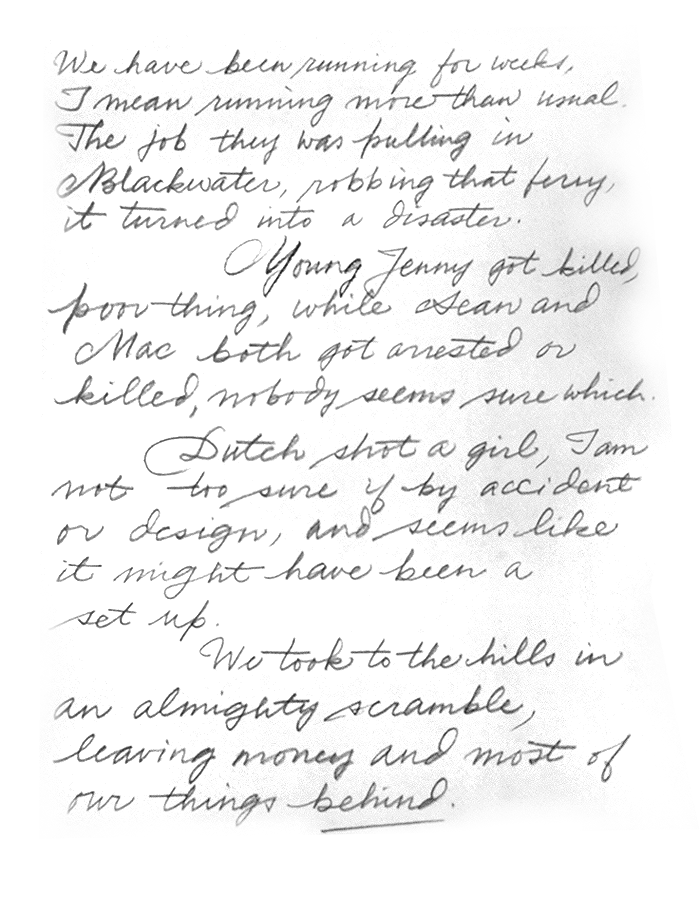 We have been running for weeks,
I mean running more than usual.
The job they was pulling in
Blackwater, robbing that ferry,
it turned into a disaster.
Young Jenny got killed,
poor thing, while Sean and
Mac both got arrested or
killed, nobody seems sure which.
Dutch shot a girl, I am
not too sure if by accident
or design, and seems like
it might have been a
set up.
We took to the hills in
an almighty scramble,
leaving money and most of
our things behind.